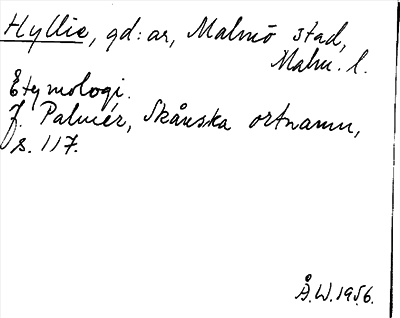 Hyllie, gd:ar, Malmö stad,
Malm. l.
Etymologi.
J. Palmér, Skånska ortnamn,
s. 117.
Å.W.1956.